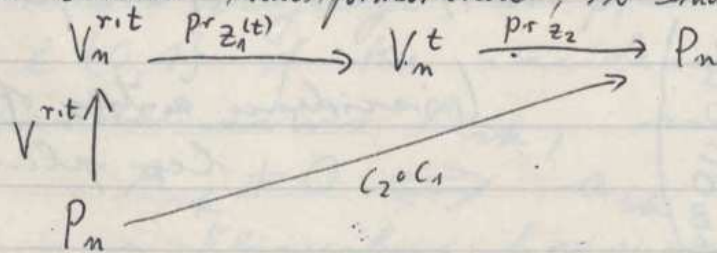 V_n^{r·t} pr_{Z_1^{(t)}} V_n^t pr_{Z_2} P_n
V^{r,t}
C_2∘C_1
P_n